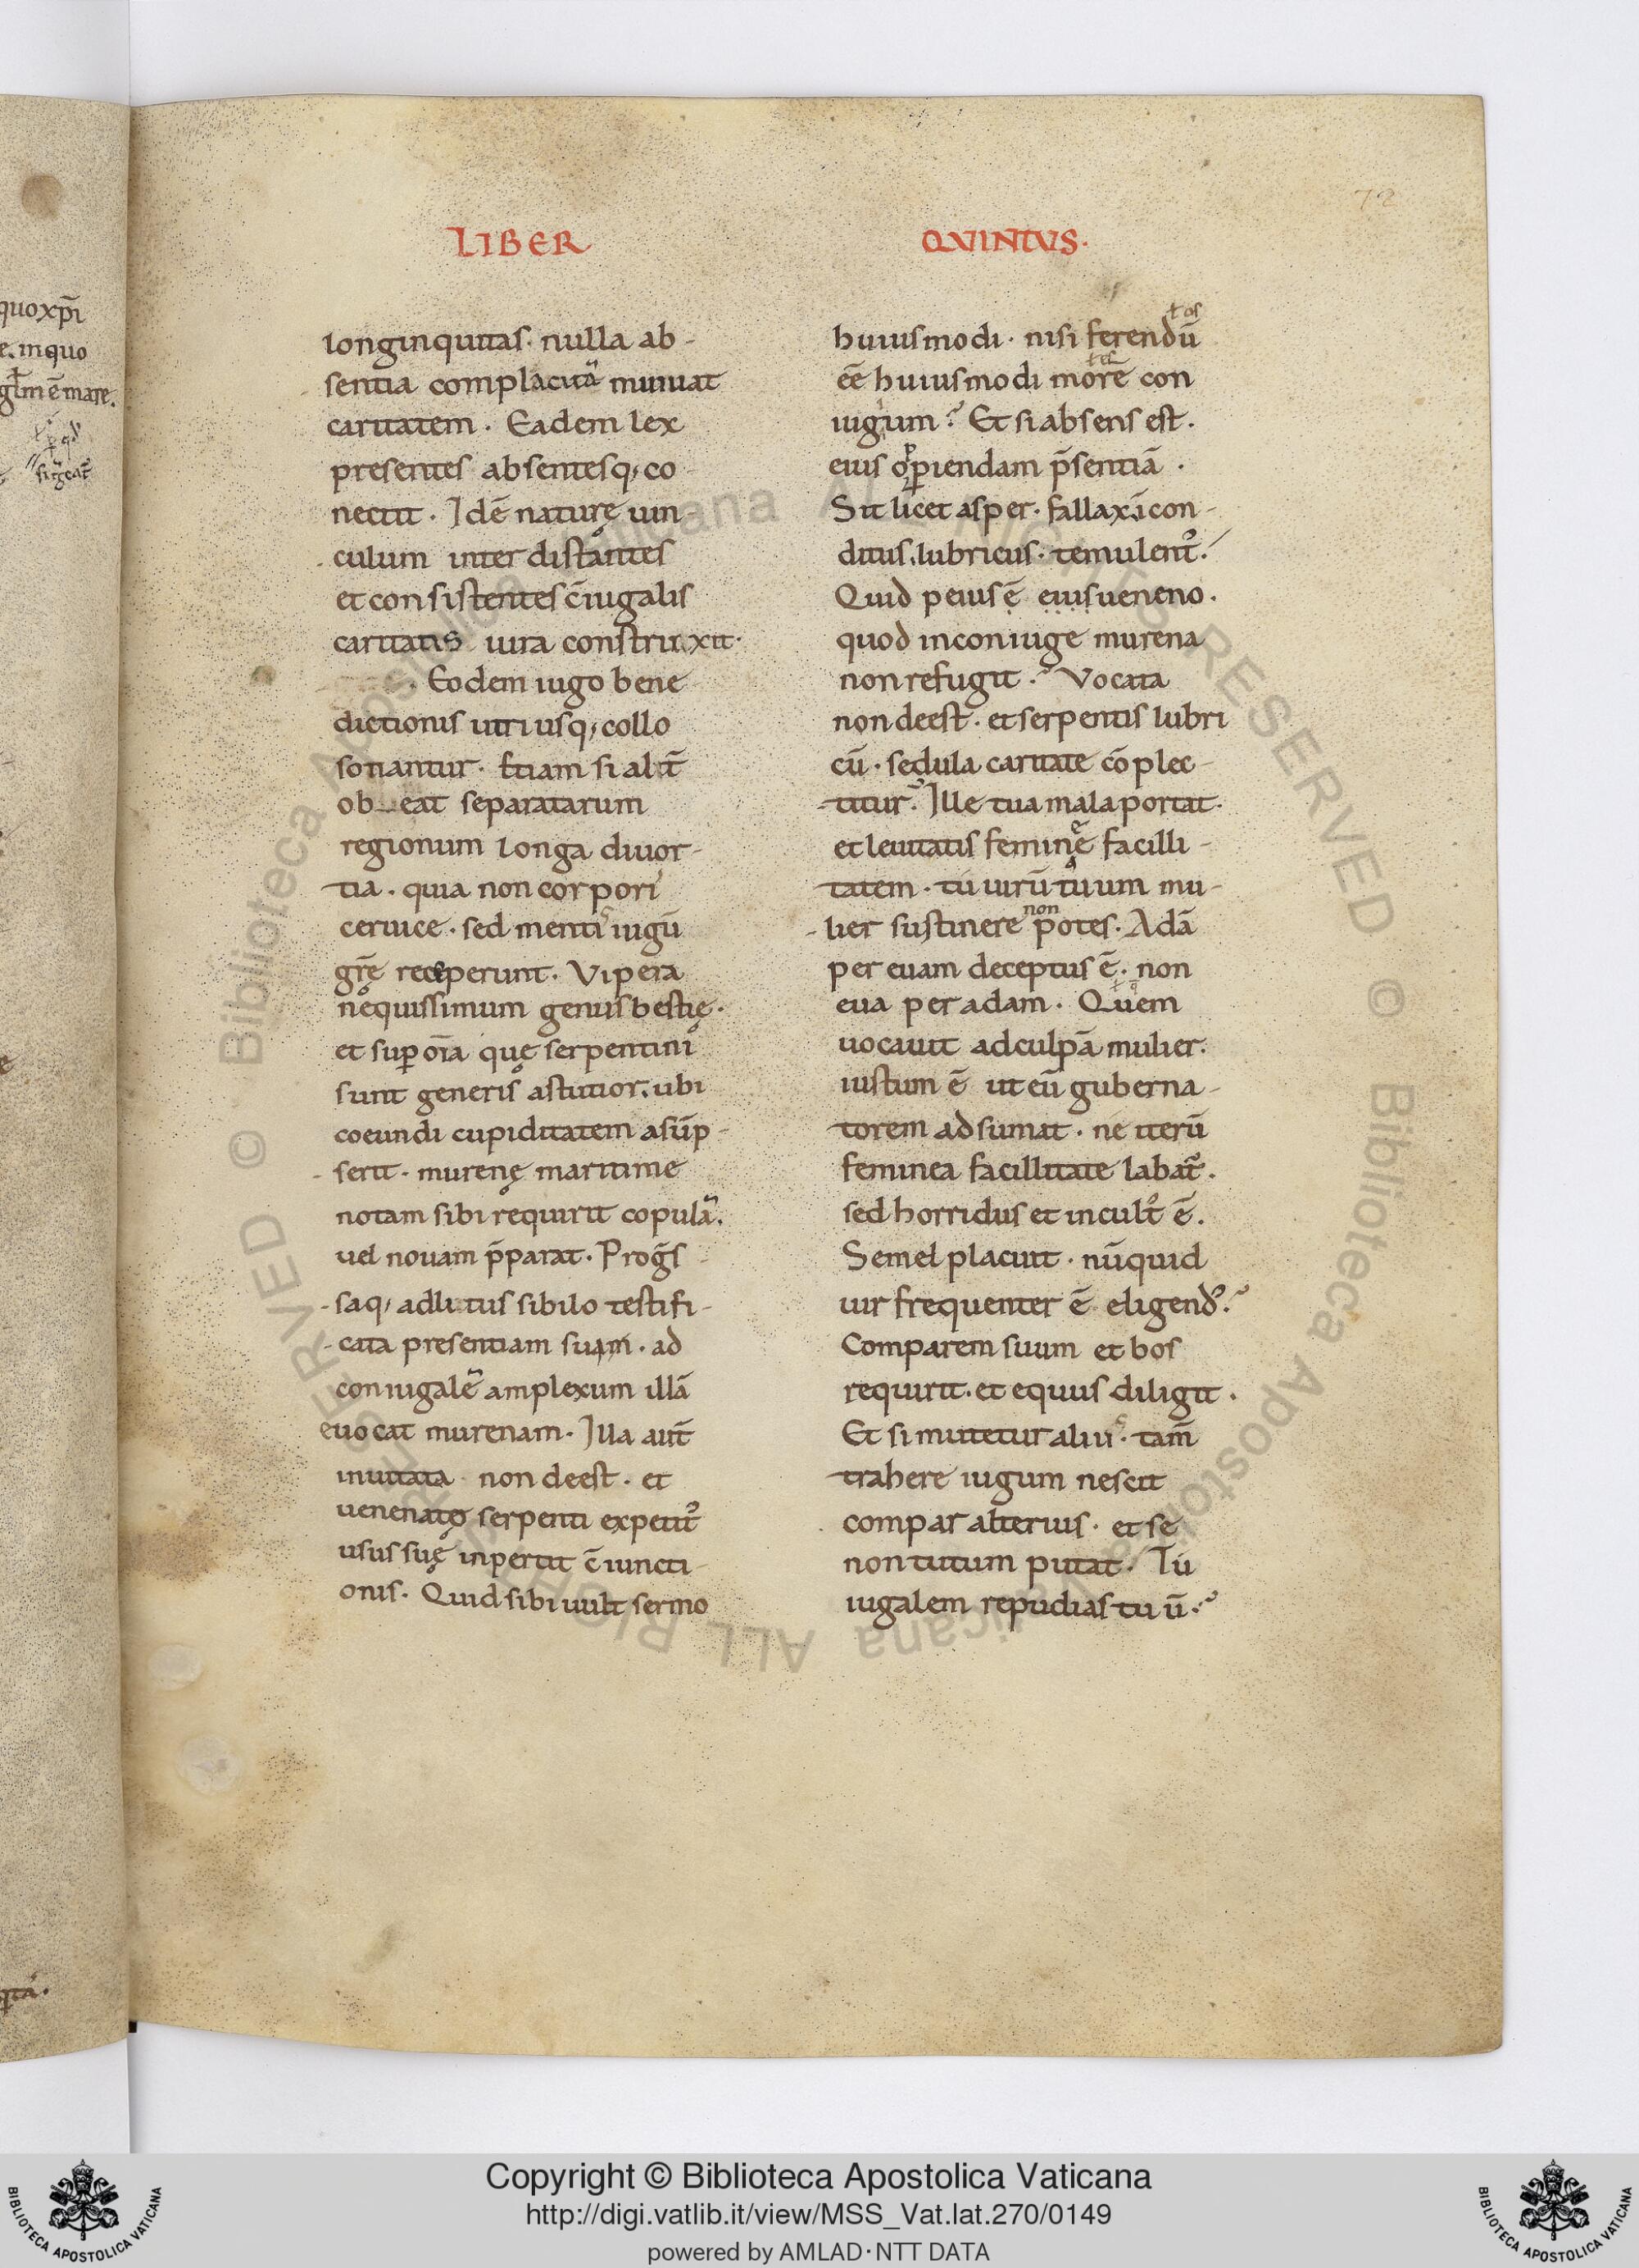 quoxp̄i
e. inquo
ē mare.
72
LIBER
QVINTVS.
longinquitas· nulla ab-
sentia complacitā minuat
caritatem. Eadem lex
presentes absentesq; co
nectit. Idē naturę uin-
culum inter distantes
et consistentes c̄iugalis
caritatis iura construxit·
Eodem iugo bene
dictionis utriusq; collo
sotiantur. Etiam si alt̄
ob eat separatarum
regionum longa diuor-
tia. quia non corpori
ceruice. sed mentis iugū
grē receperunt. Vipera
nequissimum genus bestię.
et sup̄ om̄a quę serpentini
sunt generis astutior. ubi
coeundi cupiditatem asūp-
serit. murenę maritime
notam sibi requirit copulā.
uel nouam p̄parat. Progs̄
saq; ad litus sibilo testifi-
cata presentiam suam. ad
coniugalē amplexum illā
euocat murenam. Illa aut̄
inuitata non deest. et
uenenato serpenti expetit᷒
usus suę inpertit c̄iuncti-
onis. Quid sibi uult sermo
ł os
huiusmodi· nisi ferendū
ł es
eē huiusmodi morē con
iugum? Et si absens est.
eius opperiendam p̄sentiā.
Sit licet asper. fallax. icon-
ditus. lubricus. temulent᷒.
Quid peius ē eius ueneno.
quod in coniuge murena
non refugit? Vocata
non deest. et serpentis lubri
cū. sedula caritate cōplec-
titur. Ille tua mala portat.
et leuitatis feminę facilli-
tatem. tu uirū tuum mu-
non
lier sustinere potes. Adā
per euam deceptus ē. non
eua per adam. Quem
uocauit ad culpā mulier.
iustum ē ut eū guberna-
torem adsumat. ne iterū
feminea facillitate labat᷒.
sed horridus et incult᷒ ē.
Semel placuit. nūquid
uir frequenter ē eligend᷒?
Comparem suum et bos
requirit. et equus diligit.
Et si mutetur alius. tam̄
trahere iugum nescit
compar alterius. et se
non totum putat. Tu
iugalem repudias tuū?
Copyright © Biblioteca Apostolica Vaticana
http://digi.vatlib.it/view/MSS_Vat.lat.270/0149
powered by AMLAD·NTT DATA
BIBLIOTECA APOSTOLICA VATICANA
BIBLIOTECA APOSTOLICA VATICANA